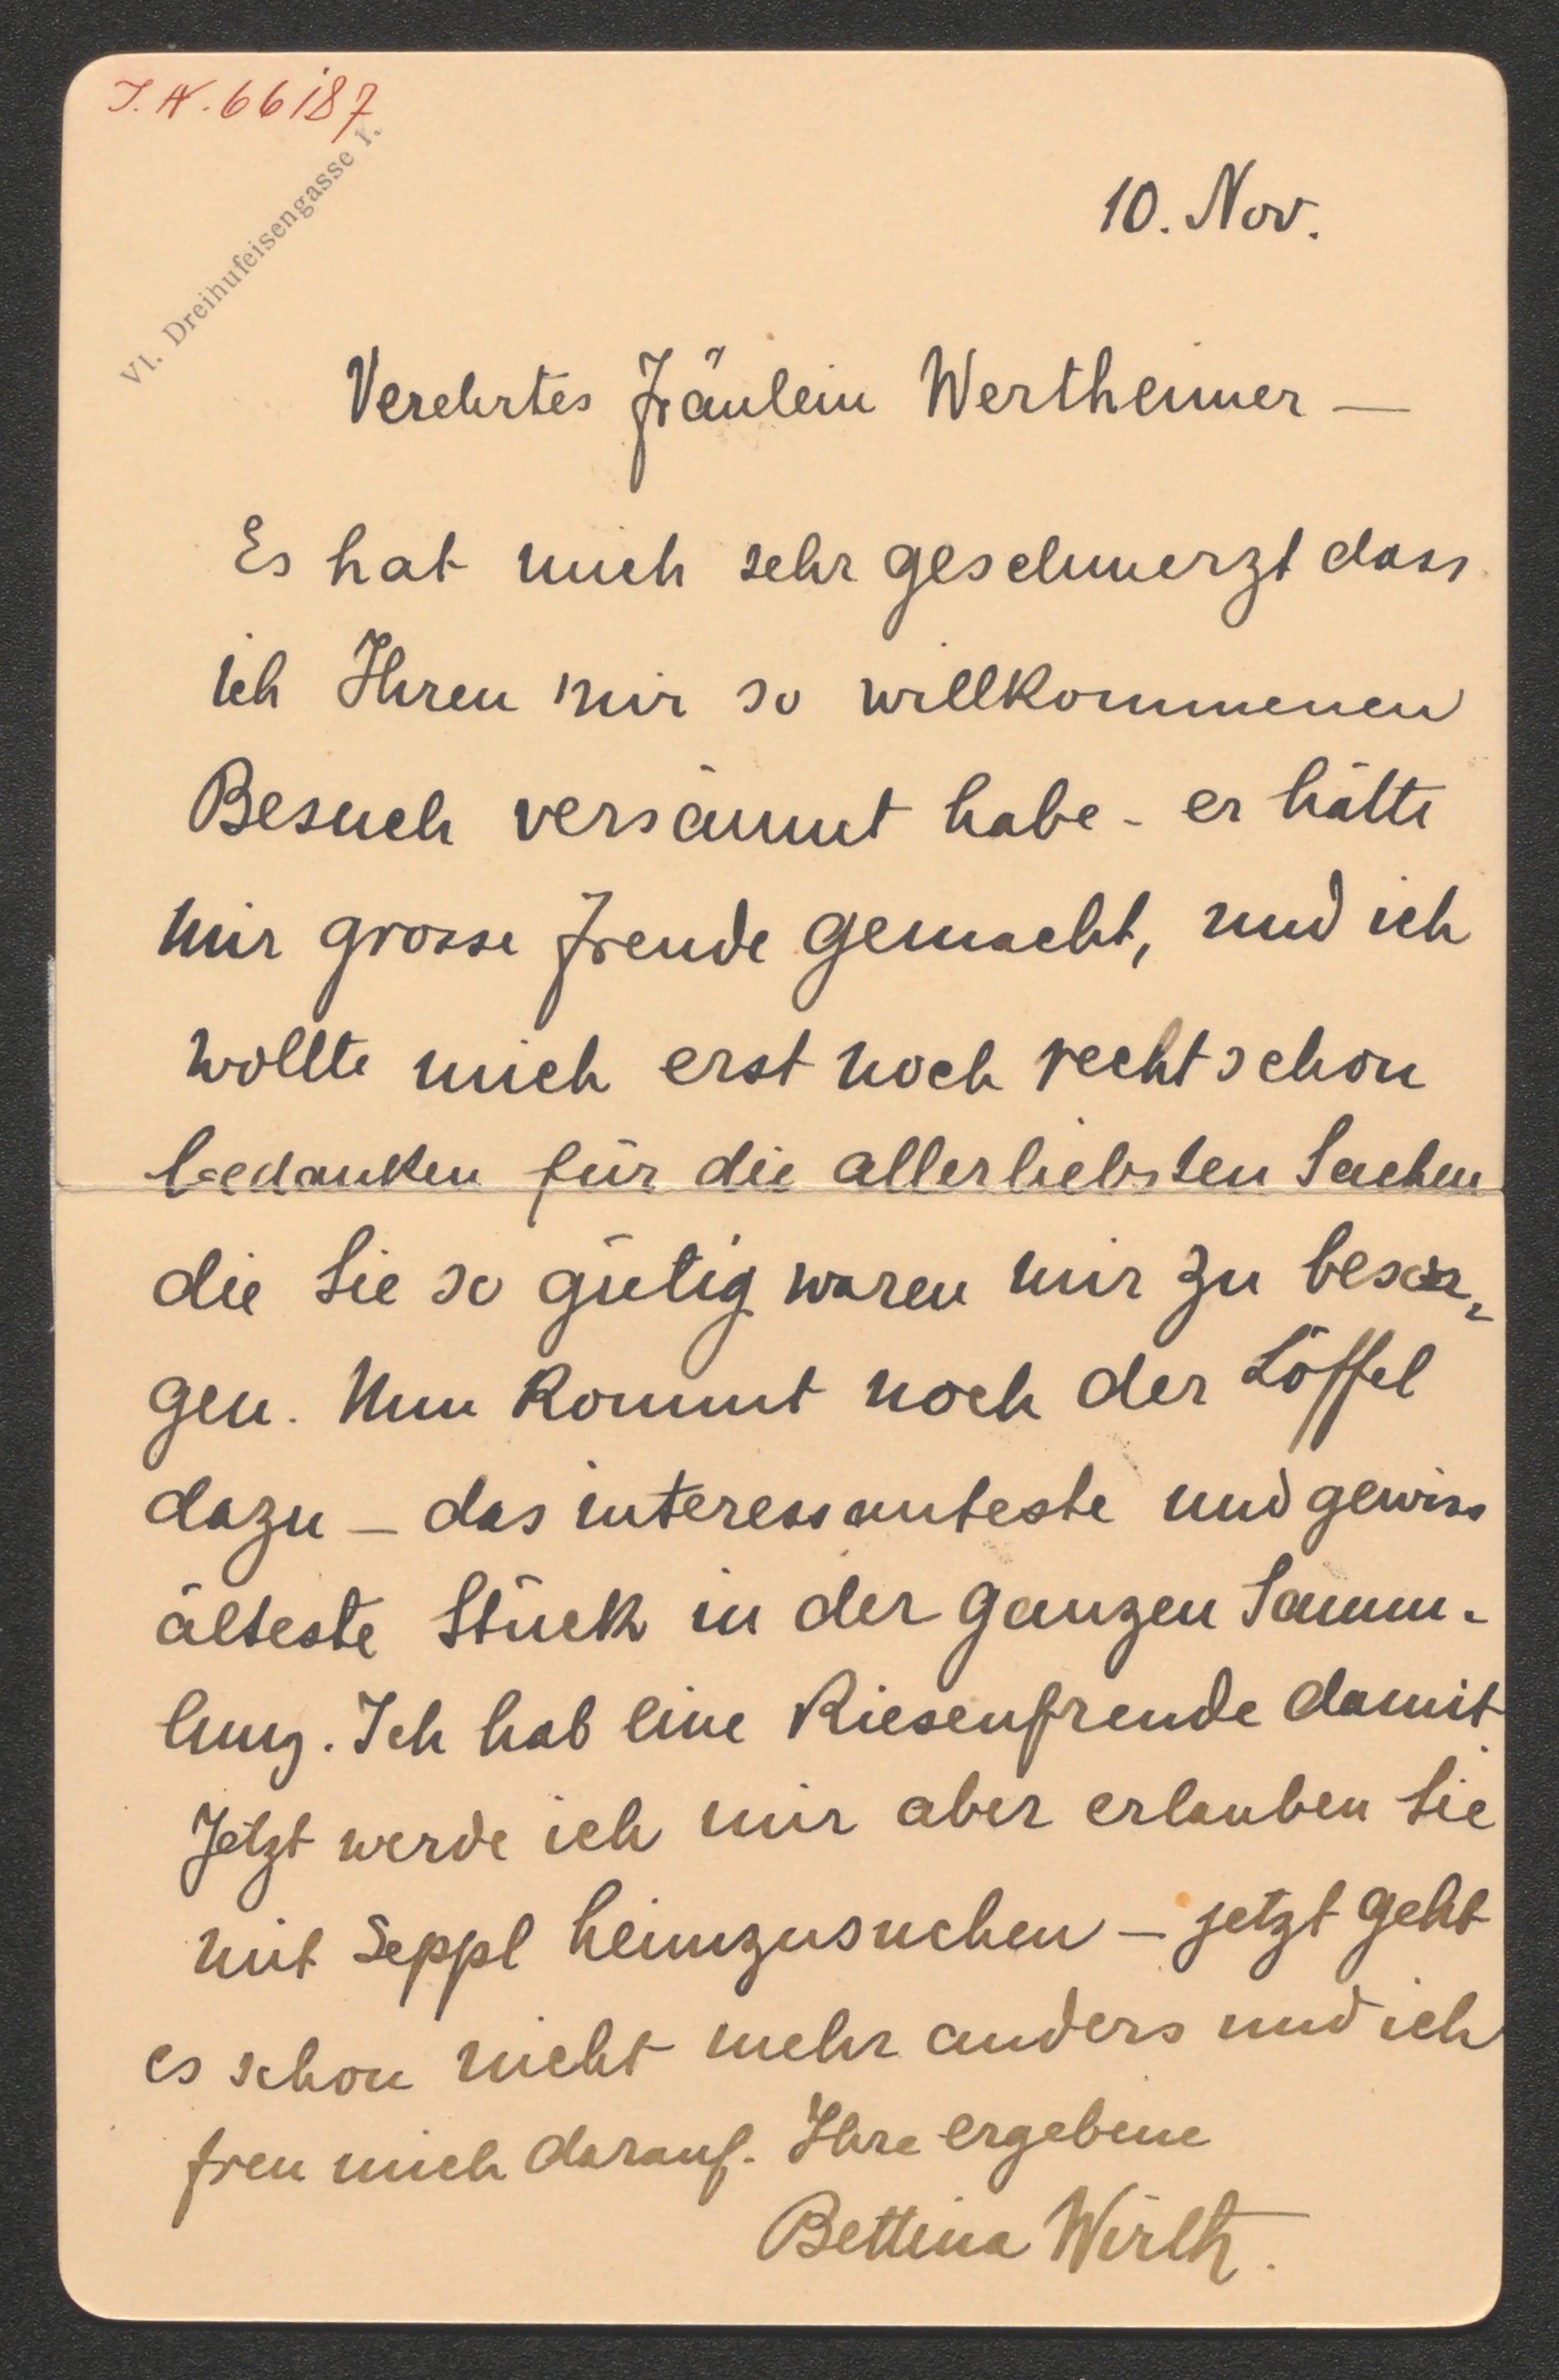 J.N. 66187
VI. Dreihufeisengasse 1.
10. Nov.
Verehrtes Fräulein Wertheimer —
Es hat mich sehr geschmerzt dass
ich Ihren mir so willkommenen
Besuch versäumt habe - er hätte
mir grosse Freude gemacht, und ich
wollte mich erst noch recht schön
bedanken für die allerliebsten Sachen
die Sie so gütig waren mir zu besor-
gen. Nun kommt noch der Löffel
dazu — das interessanteste und gewiss
älteste Stück in der ganzen Samm-
lung. Ich hab eine Riesenfreude damit.
Jetzt werde ich mir aber erlauben Sie
mit Seppl heimzusuchen — jetzt geht
es schon nicht mehr anders und ich
freu mich darauf. Ihre ergebene
Bettina Wirth.